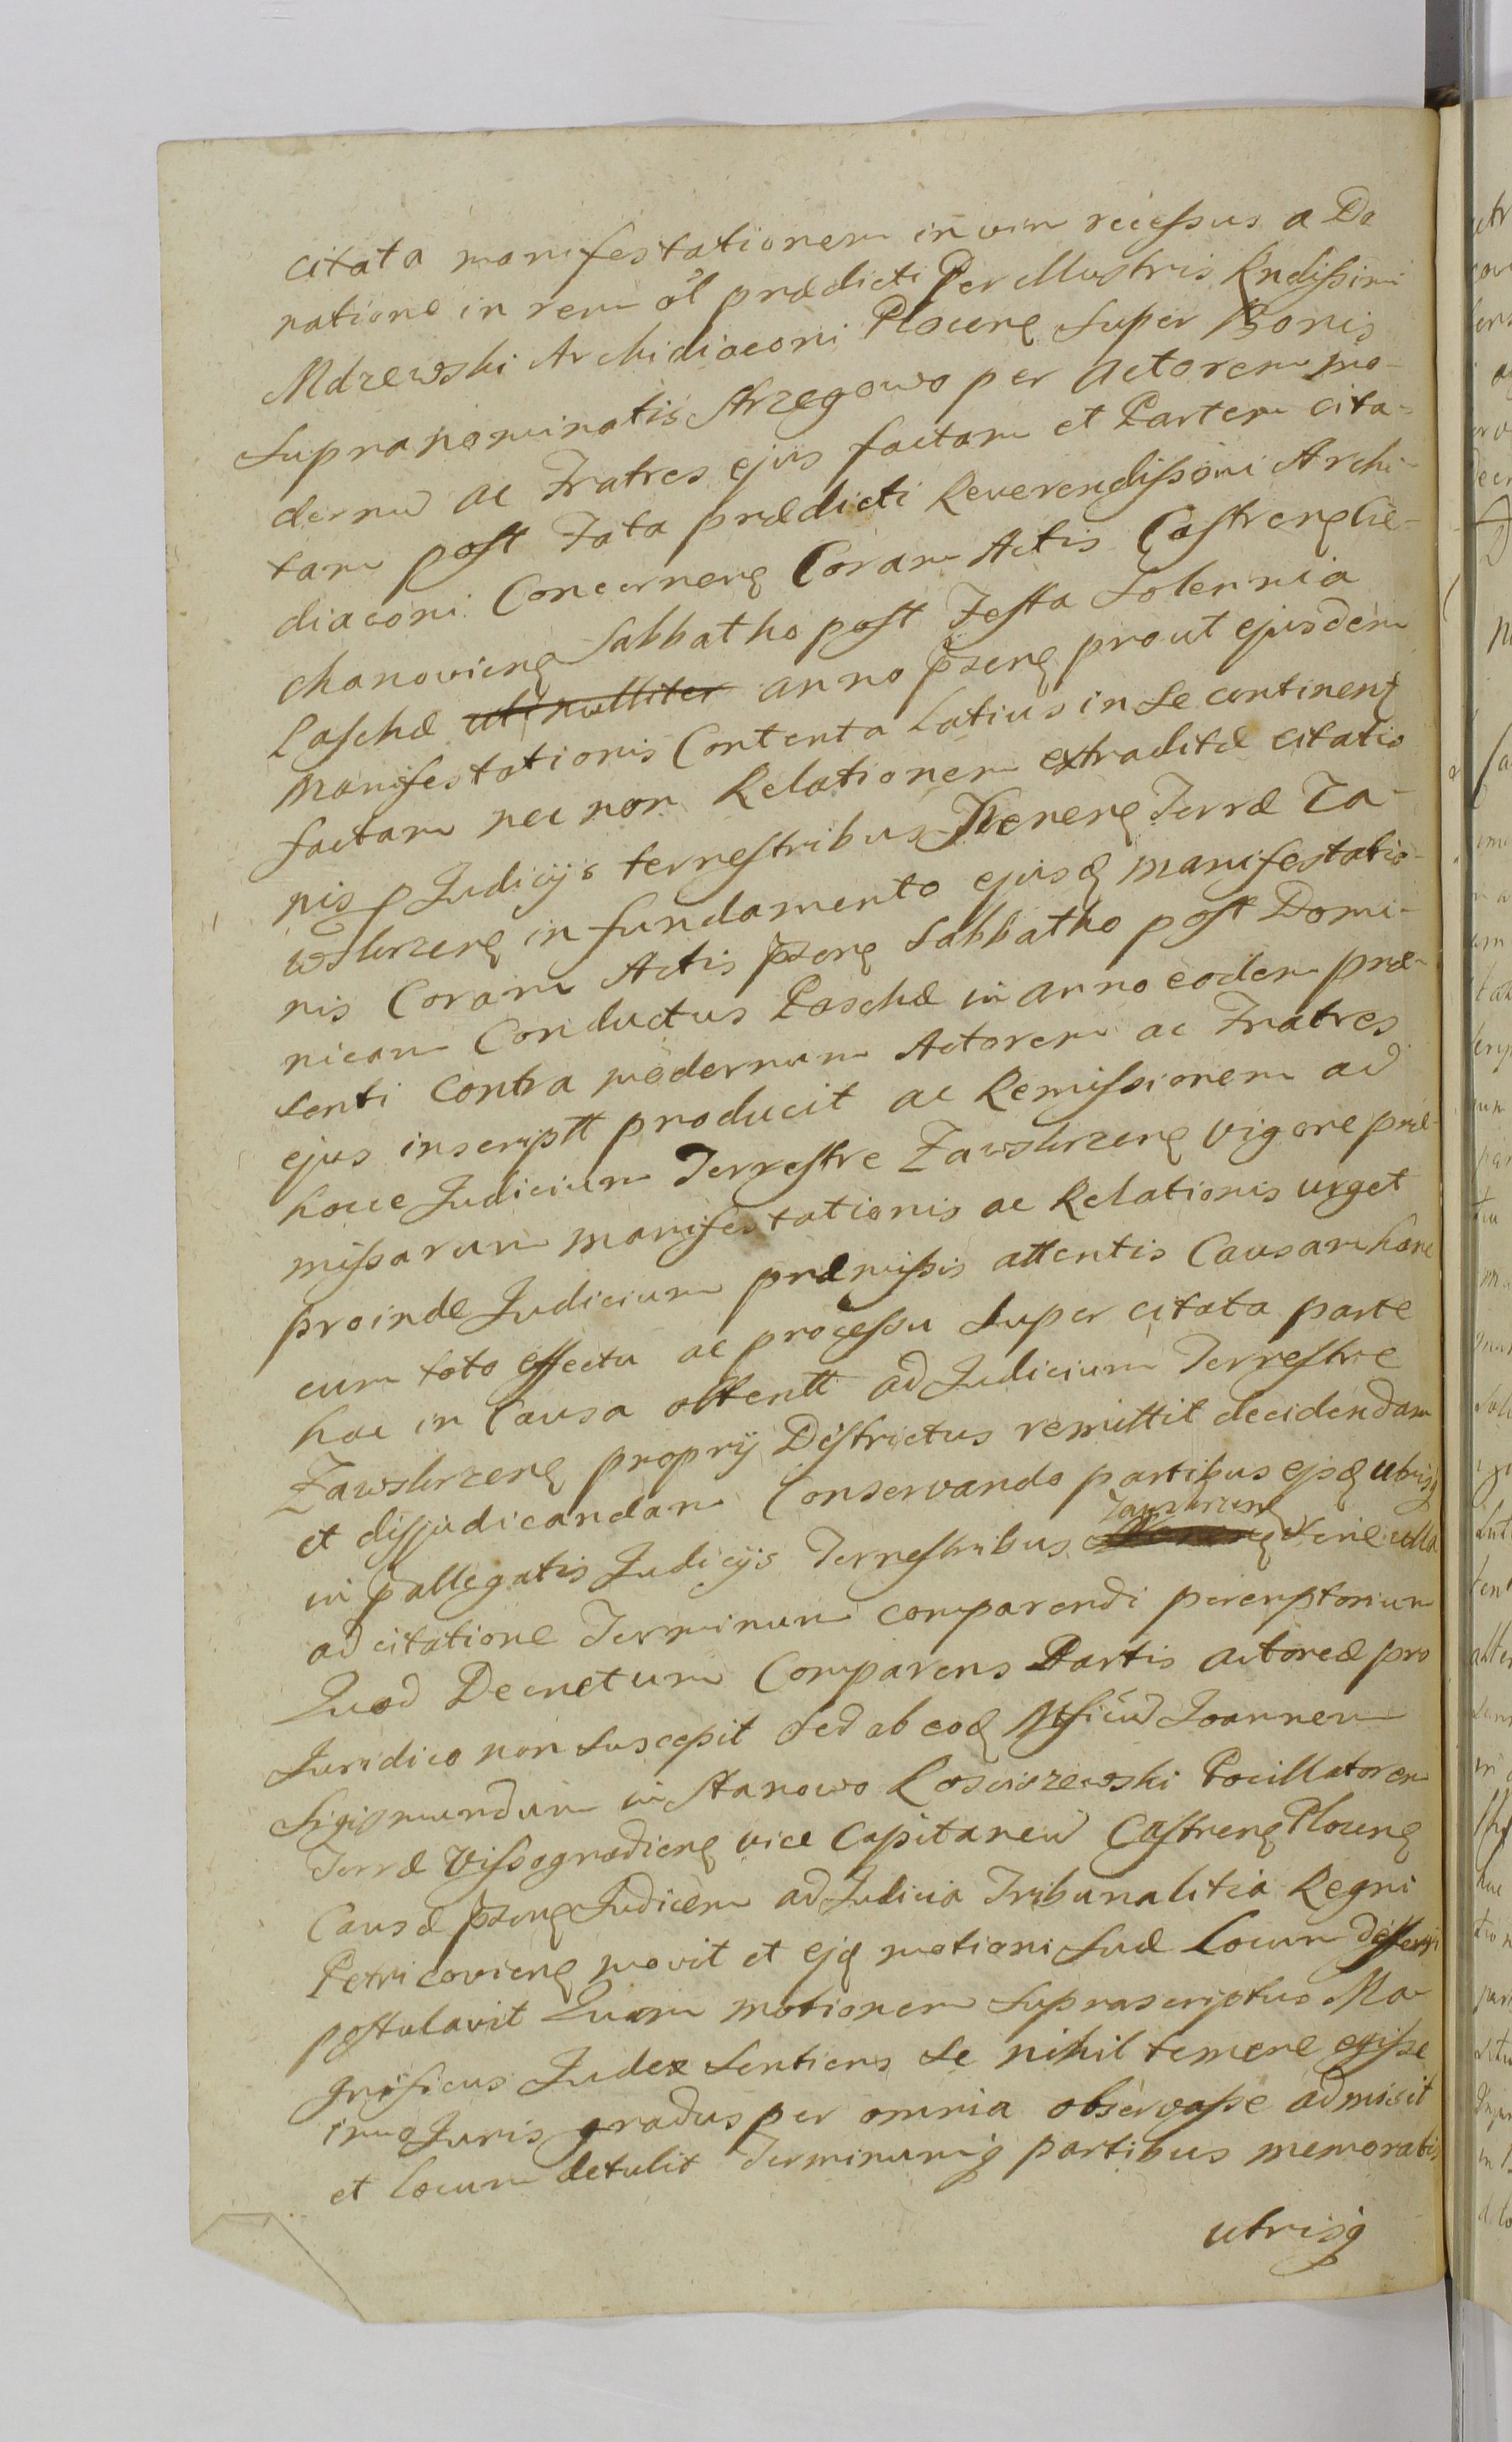 citata manifestationem in vim recessus a Do
natione in rem ol prædicti Perillustris Rndissimi
Mdzewski Archidiaconi Plocen Super Bonis
Supranominatis Strzegowo per Actorem mo-
dernu ac Fratres ejus factam et Partem cita-
tam post Fata prædicti Reverendissimi Archi-
diaconi Concernen Coram Actis Castren Cie-
chanovien Sabbatho post Festa Solennia
Paschæ anno pzen prout ejusdem
Manifestationis Contenta latius in Se continent
factam nec non Relationem extraditæ citatio
nis p Judicijs terrestribus Terræ Za-
wskrzen in fundamento ejusd manifestatio-
nis Coram Actis pzen Sabbatho post Domi-
nicam Conductus Paschæ in anno eodem præ-
senti contra modernum Actorem ac Fratres
ejus inscriptt producit ac Remissionem ad
hocce Judicium Terrestre Zawskrzen vigore præ-
missarum manifestationis ac Relationis urget
proinde Judicium præmissis attentis Causam hanc
cum toto effectu ac processu Super citata parte
hac in Causa obtentt ad Judicium Terrestre
Zawskrzen proprij Districtus remittit decidendam
et disjudicandam Conservando partibus ejsd utrisq
in pallegatis Judicijs Terrestribus Zawskrzen Sine ulla
adcitatione Terminum comparendi peremptorium
Quod Decretum Comparens Partis actoreæ pro
Juridico non Suscepit Sed ab eod Mficu Joannem
Sigismundum in Stanowo Rosciszewski Pocillatorem
Terræ Vissogradien vice Capitaneu Castren Plocen
Causæ pzen Judicem ad Judicia Tribunalitia Regni
Petricovien movit et ejd motioni Suæ Locum defferri
postulavit Quam motionem Suprascriptus Ma-
gnificus Judex Sentiens Se nihil temere egisse
imo Juris gradus per omnia observasse admisit
et locum detulit Terminumq partibus memoratis
utrisq